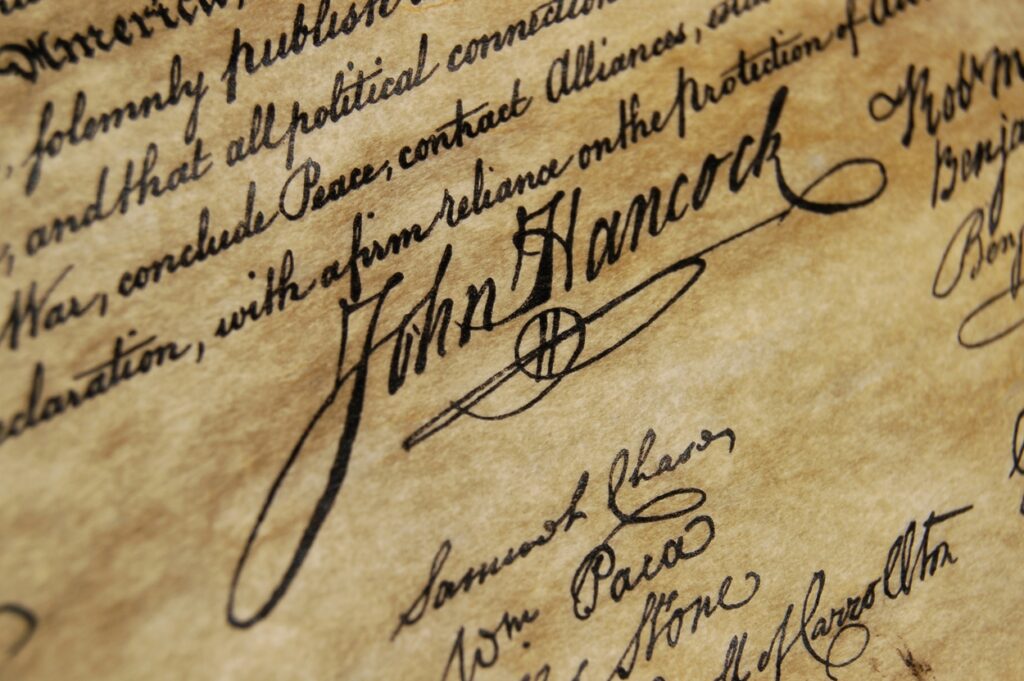 America,
solemnly publish
, and that all political connection
War, conclude Peace, contract Alliances,
eclaration, with a firm reliance on the protection of
John Hancock
H
Rob M
Benja
Benj
Samuel Chase,
Wm. Paca
Stone
of Carrollton